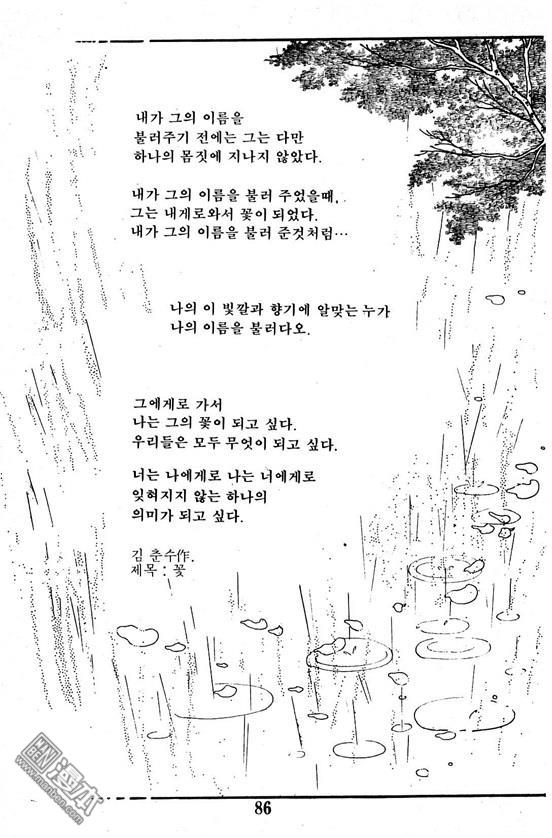 내가 그의 이름을
불러주기 전에는 그는 다만
하나의 몸짓에 지나지 않았다.
내가 그의 이름을 불러 주었을때,
그는 내게로와서 꽃이 되었다.
내가 그의 이름을 불러 준것처럼…
나의 이 빛깔과 향기에 알맞는 누가
나의 이름을 불러다오.
그에게로 가서
나는 그의 꽃이 되고 싶다.
우리들은 모두 무엇이 되고 싶다.
너는 나에게로 나는 너에게로
잊혀지지 않는 하나의
의미가 되고 싶다.
김 춘수作.
제목 : 꽃
86
BEN 漫本
www.manben.com